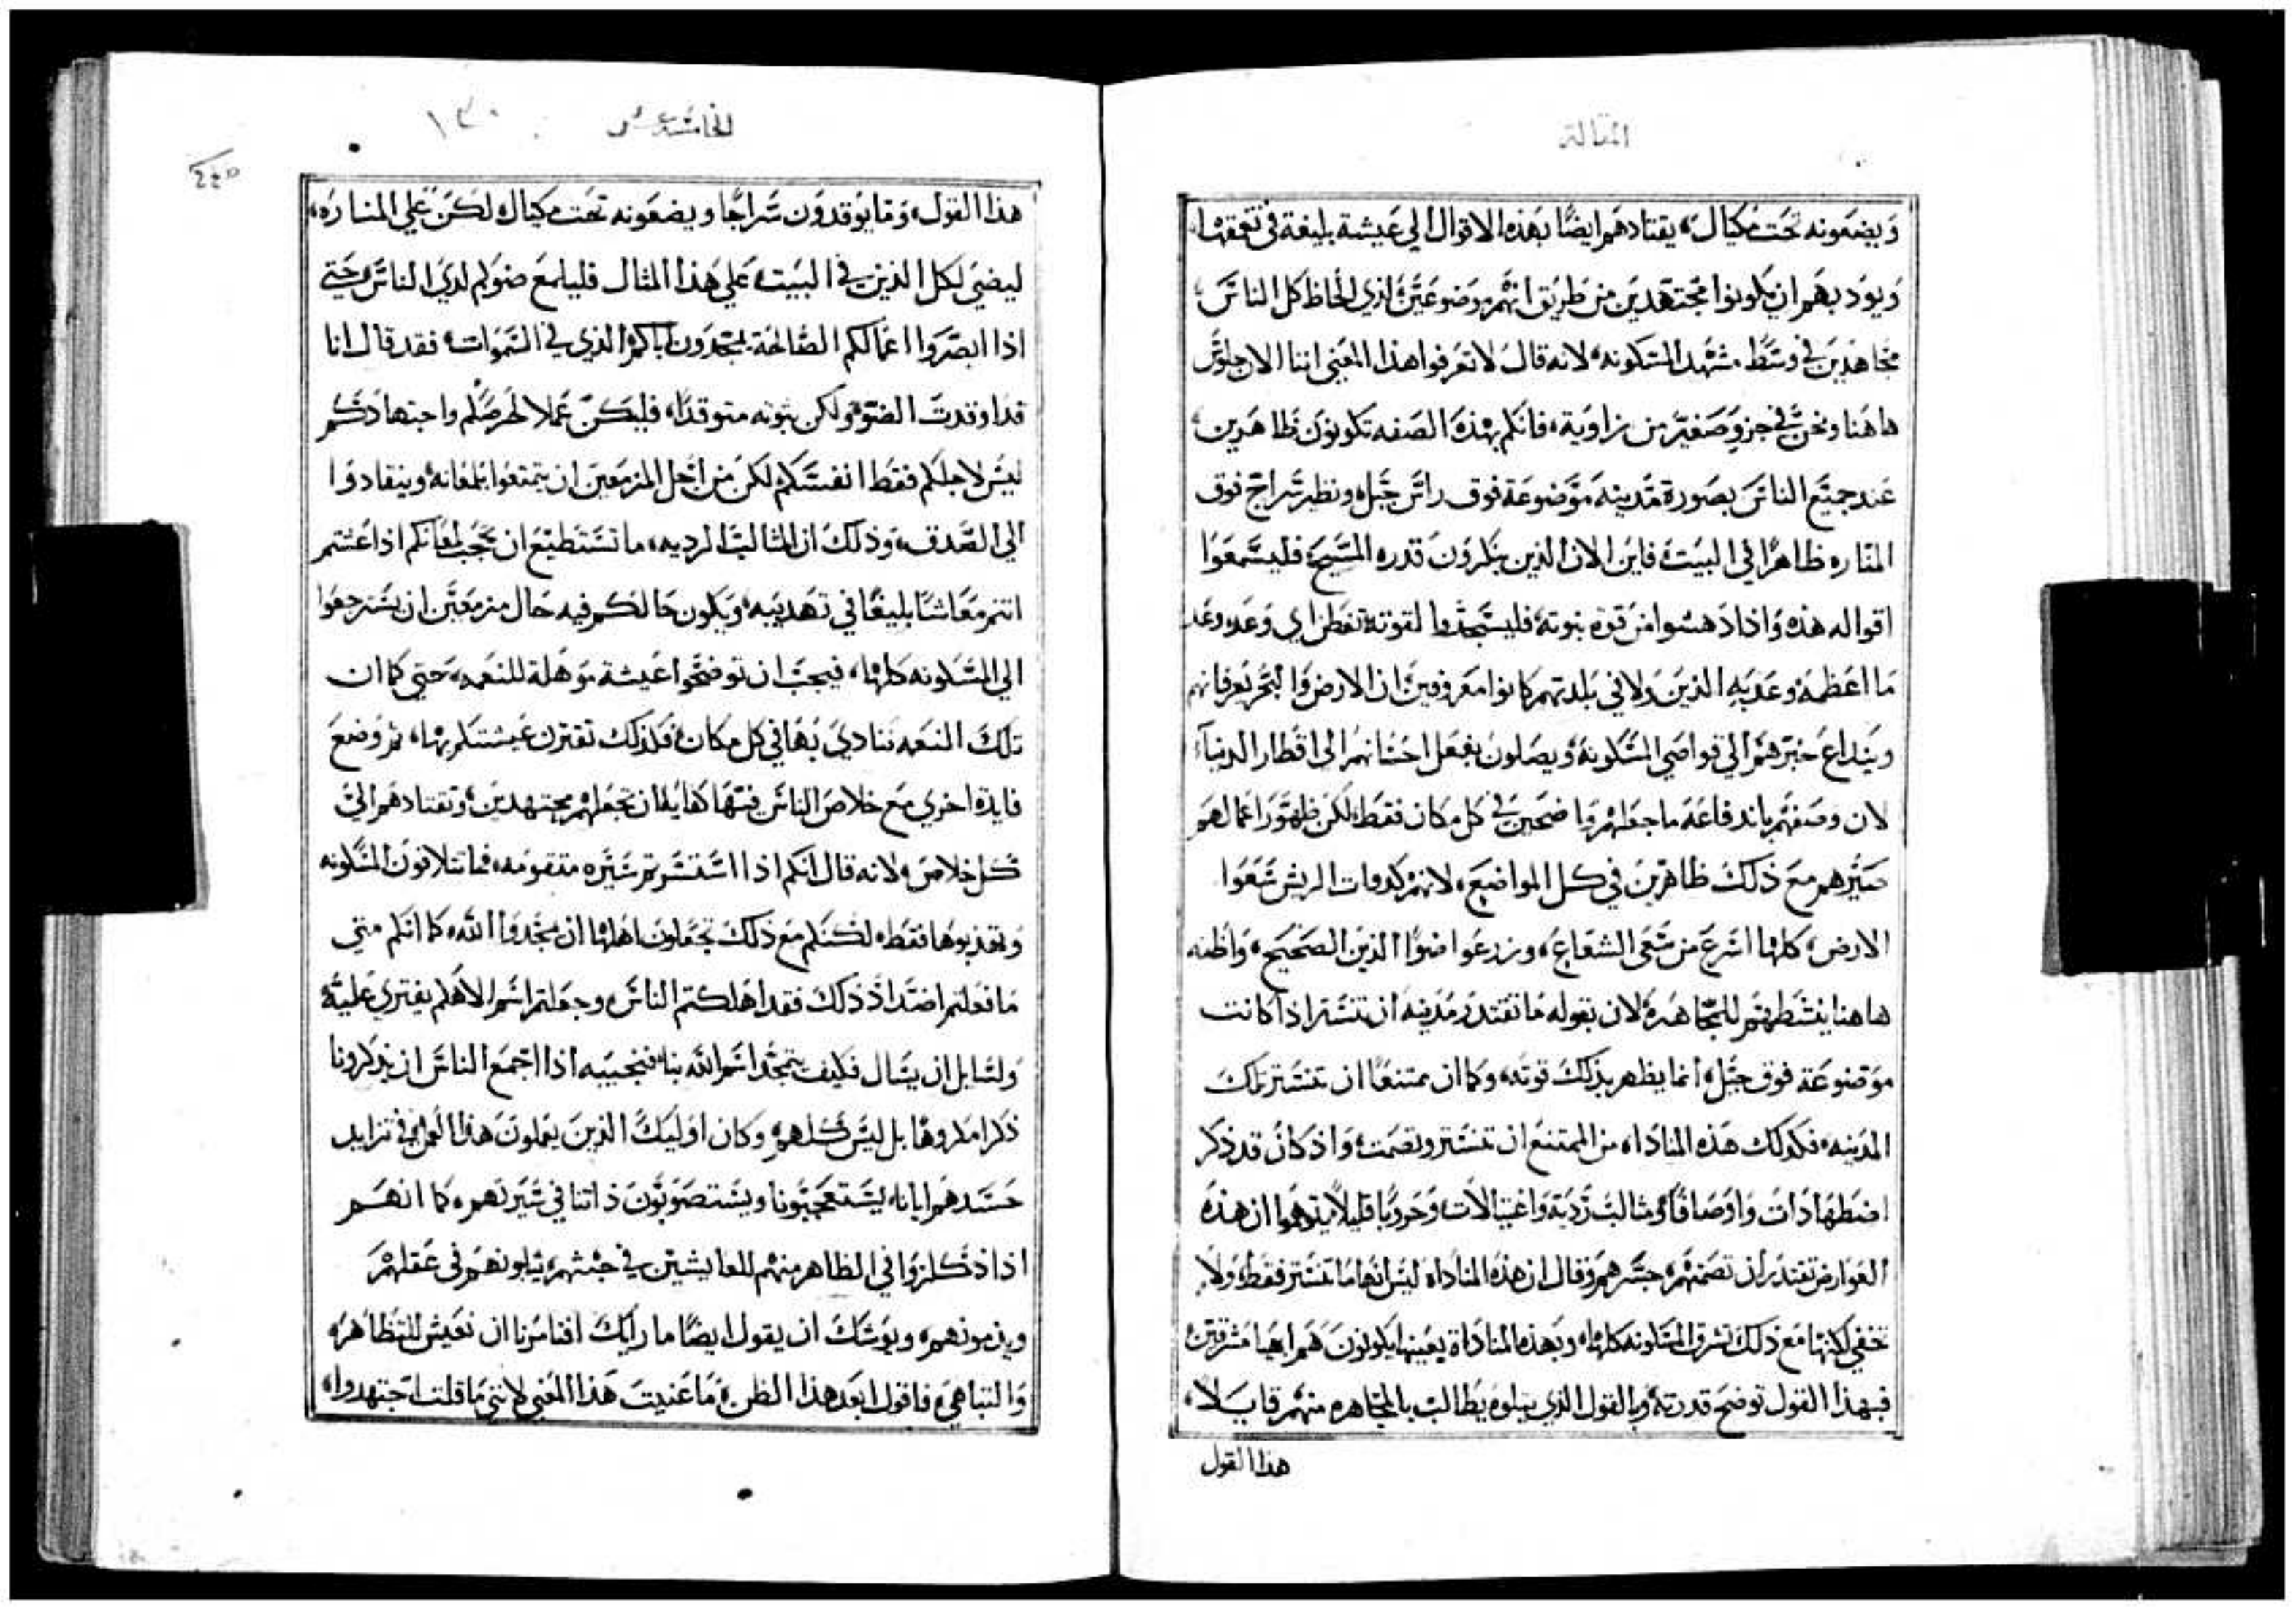 المقالة
ويضعونه تحت مكيال، يقتادهم ايضًا بهذه الاقوال الي عيشة بليغة في تعمقها،
ويود بهم ان يكونوا مجتهدين من طريق انهم موضوعين لذي الحاظ كل الناس،
مجاهدين في وسط مشهد المسكونه، لانه قال لا تعرفوا هذا المعني اننا الان جلوس
هاهنا ونحن في جزو صغير من زاوية، فانكم بهذه الصفه تكونون ظاهرين،
عند جميع الناس بصورة مدينه موضوعة فوق راس جبل، ونظير سراج فوق
المناره ظاهرًا في البيت، فاين الان الذين ينكرون قدره المسيح، فليسمعوا
اقواله هذه واذا دهشوا من قوة بنوته، فليسجدوا لقوته، تفطن اي وعد وعد
ما اعظمه، وعد به الذين ولا في بلدتهم كانوا معروفين، ان الارض والبحر يعرفانهم
وينداع خبرهم الي قواصي المسكونة، ويصلون بفعل احسانهم الي اقطار الدنيآ،
لان وصفهم باندفاعة ما جعلهم واضحين في كل مكان فقط، لكن ظهور اعمالهم
صيرهم مع ذلك ظاهرين في كل المواضع، لانهم كذوات الريش سعوا
الارض، كلها اسرع من سعي الشعاع، وزرعوا ضوا الدين الصحيح، واظنه
هاهنا ينشطهم للمجاهره، لان بقوله ما تقتدر مدينه ان تستتر اذا كانت
موضوعة فوق جبل، انما يظهر بذلك قوته، وكما ان ممتنعًا ان تستتر تلك
المدينه، فكذلك هذه المناداه، من الممتنع ان تستتر وتصمت، واذ كان قد ذكر
اضطهادات واوصافًا ومثالب ردية واغتيالات وحروبًا قليلا يتوهموا ان هذه
العوارض تقتدر ان تصمتهم، جسرهم وقال ان هذه المناداه ليس انها ما تستتر فقط، ولا
تخفي لكنها مع ذلك تشرق المسكونه كلها، وبهذه المناداة بعينها يكونون هم ايضا مشرقين
فبهذا القول توضح قدرته، وبالقول الذي يتلوه يطالب بالمجاهره منهم قايلاً،
هذا القول
الخامسة عشر
١٣٠
هذا القول، وما يوقدون سراجًا ويضعونه تحت مكيال، لكن علي المناره،
ليضي لكل الذين في البيت، علي هذا المثال فليلمع ضوكم لدي الناس حتي
اذا ابصروا اعمالكم الصالحة يمجدون اباكم الذي في السموات، فقد قال انا
قد اوقدت الضو، ولكن ثبوته متوقدًا، فليكن عملا لحرصكم واجتهادكم
ليس لاجلكم فقط انفسكم، لكن من اجل المزمعين ان يتمتعوا بلمعانه، وينقادوا
الي الصدق، وذلك ان المثالب الرديه، ما تستطيع ان تحجب لمعانكم اذا عشتم
انتم معاشًا بليغًا في تهديبه، ويكون حالكم فيه حال مزمعين ان تسترجعوا
الي المسكونه كلها، فيجب ان توضحوا عيشة موهلة للنعمه، حتي كما ان
تلك النعمه ينادي بها في كل مكان، فكذلك تقترن عيشتكم بها، ثم وضع
فايدة اخري مع خلاص الناس فيها كفاية ان تجعلهم مجتهدين، وتقتادهم الي
كل خلاص، لانه قال انكم اذا استسرتم سيره متقومه، فما تتلافون المسكونه
وتهذبوها فقط، لكنكم مع ذلك تجعلون اهلها ان يمجدوا الله، كما انكم متي
ما فعلتم اضداد ذلك فقد اهلكتم الناس، وجعلتم اسم الاهكم يفتري عليه،
ولسايل ان يسال فكيف يتمجد اسم الله بنا، فنجيبه اذا اجمع الناس ان يذكرونا
ذكرا مكروها بل ليس كلهم، وكان اوليك الذين يعملون هذا العمل في تزايد
حسدهم ايانا، يستعجبونا ويستصوبون ذاتنا في سيرتهم، كما انهم
اذا ذكلزوا في الظاهر منهم للعايشين في خبثهم، يثلبونهم في عقلهم
ويذمونهم، ويوشك ان يقول ايضًا ما رايك افتامرنا ان نعيش للتظاهر،
والتباهي، فاقول ابعد هذا الظن، ما عنيت هذا المعني لانني ما قلت اجتهدوا،